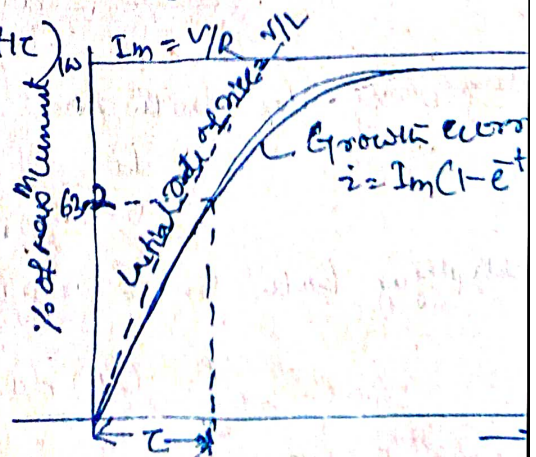 Im = V/R
% of max m current
Initial Rate of rise = V/L
63.2
Growth curr
i = Im(1-e^-t
τ